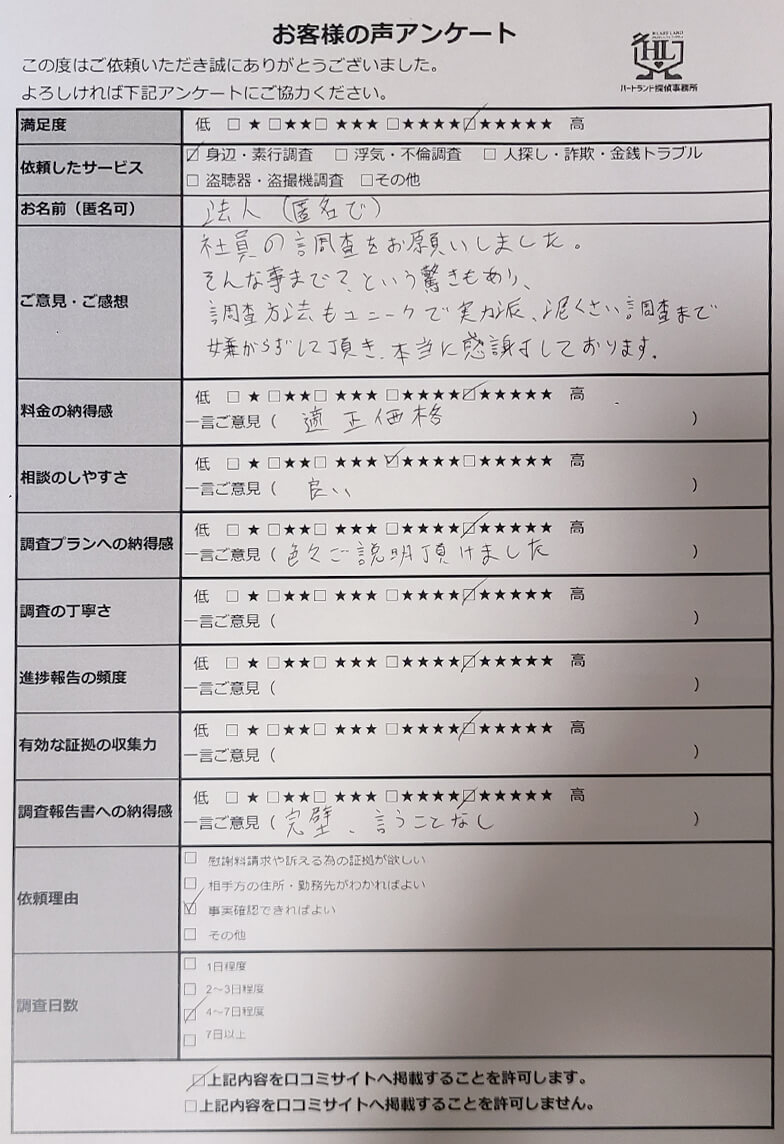 お客様の声アンケート
この度はご依頼いただき誠にありがとうございました。
よろしければ下記アンケートにご協力ください。
HL
ハートランド探偵事務所
満足度 低 □ ★ □★★□ ★★★ □★★★★☑★★★★★ 高
依頼したサービス
☑ 身辺・素行調査 □ 浮気・不倫調査 □ 人探し・詐欺・金銭トラブル
□ 盗聴器・盗撮機調査 □その他
お名前（匿名可） 法人（匿名で）
ご意見・ご感想
社員の調査をお願いしました。
そんな事まで？という驚きもあり、
調査方法もユニークで実力派、泥くさい調査まで
嫌がらずして頂き、本当に感謝しております。
料金の納得感
低 □ ★ □★★□ ★★★ □★★★★☑★★★★★ 高
一言ご意見（ 適正価格 ）
相談のしやすさ
低 □ ★ □★★□ ★★★☑★★★★□★★★★★ 高
一言ご意見（ 良い ）
調査プランへの納得感
低 □ ★ □★★□ ★★★ □★★★★☑★★★★★ 高
一言ご意見（ 色々ご説明頂けました ）
調査の丁寧さ
低 □ ★ □★★□ ★★★ □★★★★☑★★★★★ 高
一言ご意見（ ）
進捗報告の頻度
低 □ ★ □★★□ ★★★ □★★★★☑★★★★★ 高
一言ご意見（ ）
有効な証拠の収集力
低 □ ★ □★★□ ★★★ □★★★★☑★★★★★ 高
一言ご意見（ ）
調査報告書への納得感
低 □ ★ □★★□ ★★★ □★★★★☑★★★★★ 高
一言ご意見（ 完璧、言うことなし ）
依頼理由
□ 慰謝料請求や訴える為の証拠が欲しい
□ 相手方の住所・勤務先がわかればよい
☑ 事実確認できればよい
□ その他
調査日数
□ 1日程度
□ 2～3日程度
☑ 4～7日程度
□ 7日以上
☑上記内容を口コミサイトへ掲載することを許可します。
□上記内容を口コミサイトへ掲載することを許可しません。